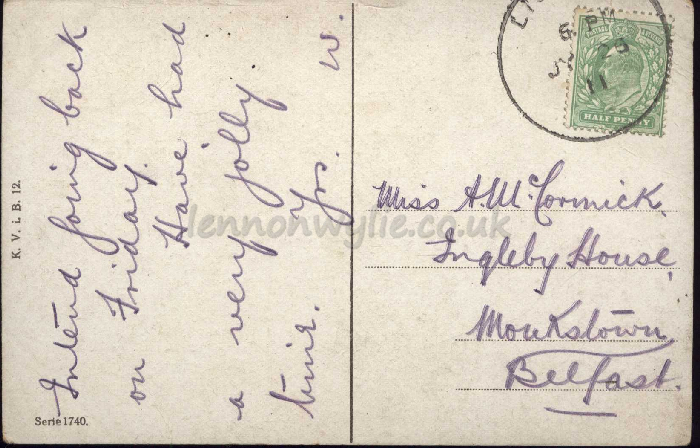 Intend going back
on Friday.
Have had
a very jolly
time. Yrs. W.
K. V. i. B. 12.
Serie 1740.
6 PM
11
HALF PENNY
Miss A. McCormick,
Ingleby House,
Monkstown,
Belfast.
lennonwylie.co.uk